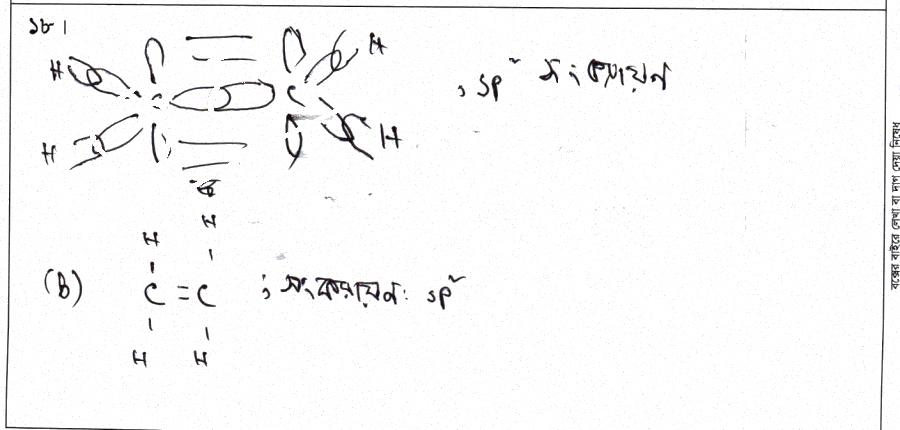 ১৮।
H H
C C , sp² সংকরায়ন
H H
H
H
(B) C = C ; সংকরায়ন: sp²
H H
বক্সের বাইরে লেখা বা দাগ দেয়া নিষেধ